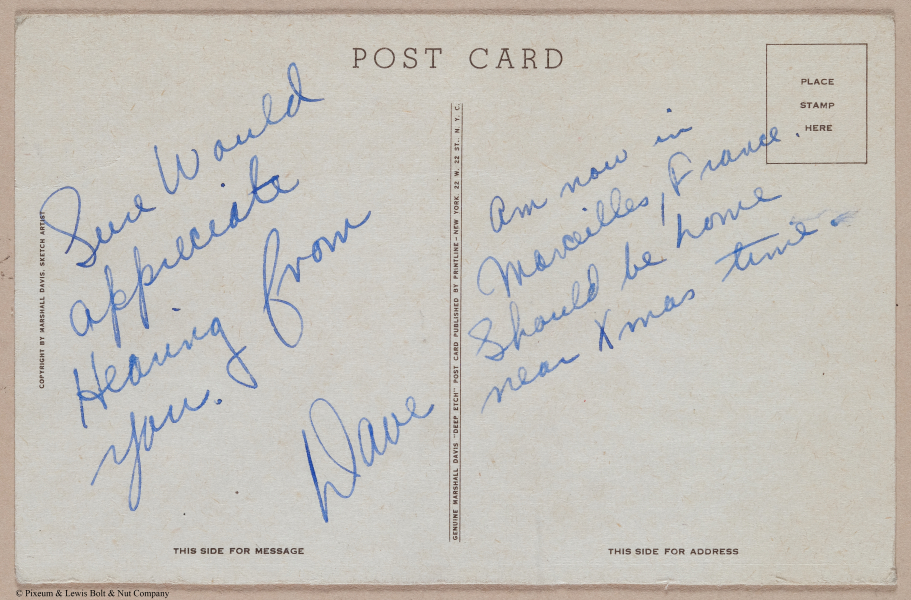 POST CARD
PLACE
STAMP
HERE
Sure Would
appreciate
Hearing from
you.
Dave
Am now in
Marceilles, France.
Should be home
near Xmas time.
COPYRIGHT BY MARSHALL DAVIS, SKETCH ARTIST
GENUINE MARSHALL DAVIS "DEEP ETCH" POST CARD PUBLISHED BY PRINTLINE—NEW YORK, 22 W. 22 ST., N. Y. C.
THIS SIDE FOR MESSAGE
THIS SIDE FOR ADDRESS
© Pixeum & Lewis Bolt & Nut Company